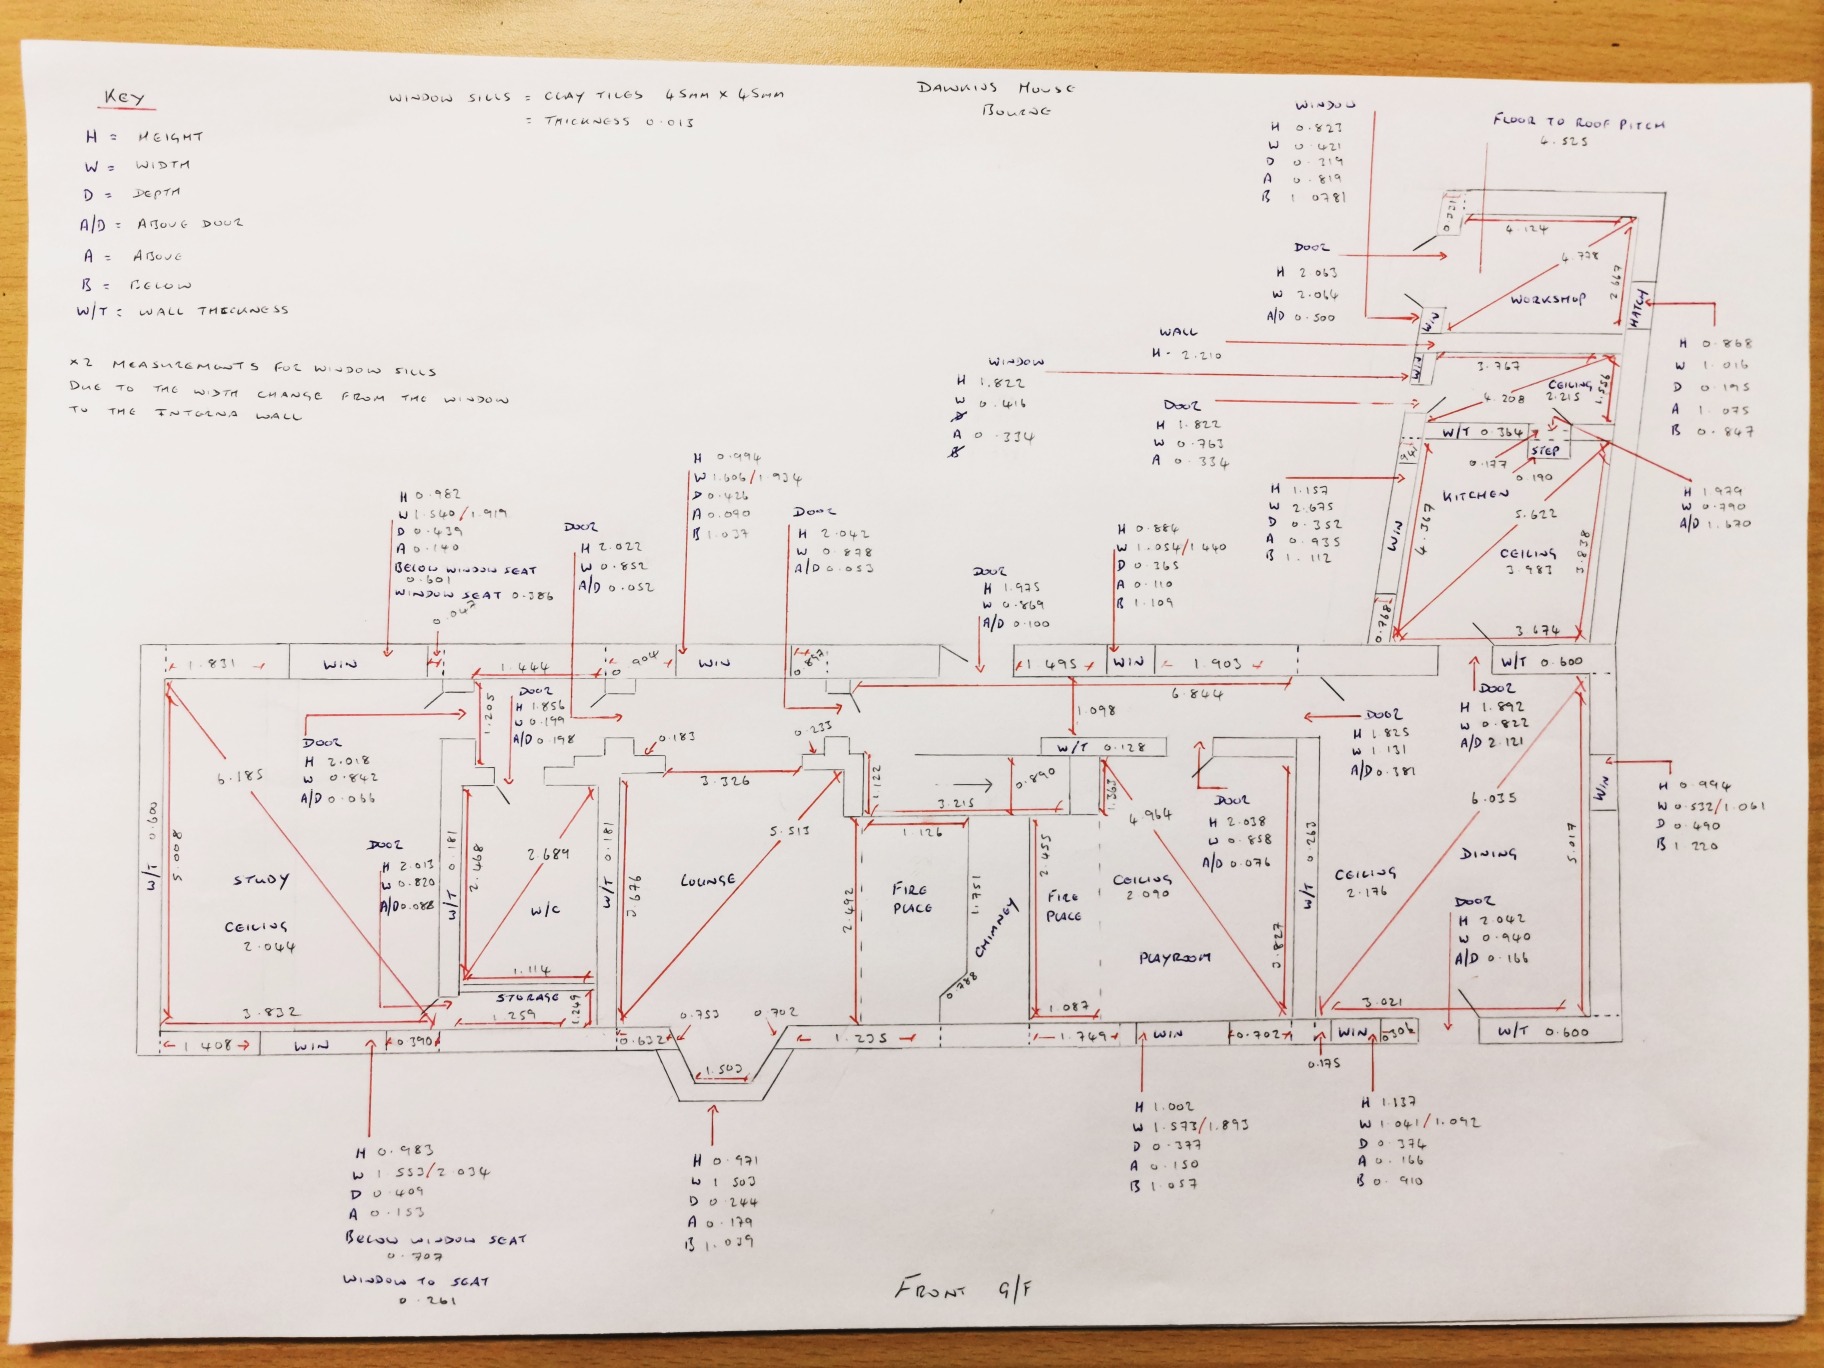 KEY
H = HEIGHT
W = WIDTH
D = DEPTH
A/D = ABOVE DOOR
A = ABOVE
B = BELOW
W/T = WALL THICKNESS
×2 MEASUREMENTS FOR WINDOW SILLS
DUE TO THE WIDTH CHANGE FROM THE WINDOW
TO THE INTERNA WALL
WINDOW SILLS = CLAY TILES 45MM X 45MM
= THICKNESS 0.013
DAWKINS HOUSE
BOURNE
WINDOW
H 0.823
W 0.421
D 0.219
A 0.819
B 1.0781
FLOOR TO ROOF PITCH
4.525
DOOR
H 2.063
W 2.064
A/D 0.500
4.124
4.778
2.667
WORKSHOP
HATCH
WIN
WALL
H- 2.210
WINDOW
H 1.822
W 0.416
A 0.334
WIN
3.767
CEILING
2.215
4.208
1.556
H 0.868
W 1.016
D 0.195
A 1.075
B 0.847
DOOR
H 1.822
W 0.763
A 0.334
W/T 0.364
STEP
0.177
0.190
H 1.979
W 0.790
A/D 1.670
H 1.157
W 2.675
D 0.352
A 0.935
B 1.112
WIN
KITCHEN
4.367
5.622
CEILING
3.983
3.838
0.768
3.674
H 0.982
W 1.540/1.919
D 0.439
A 0.140
BELOW WINDOW SEAT
0.601
WINDOW SEAT 0.386
0.047
DOOR
H 2.022
W 0.852
A/D 0.052
H 0.994
W 1.606/1.934
D 0.426
A 0.090
B 1.037
DOOR
H 2.042
W 0.878
A/D 0.053
DOOR
H 1.975
W 0.869
A/D 0.100
H 0.884
W 1.054/1.440
D 0.365
A 0.110
B 1.109
1.831
WIN
1.444
0.904
WIN
0.897
1.495
WIN
1.903
W/T 0.600
6.844
1.098
1.205
DOOR
H 1.856
W 0.199
A/D 0.198
DOOR
H 2.018
W 0.842
A/D 0.066
0.183
0.233
W/T 0.128
DOOR
H 1.825
W 1.131
A/D 0.381
DOOR
H 1.892
W 0.822
A/D 2.121
6.185
3.326
1.122
3.215
0.890
1.363
DOOR
H 2.038
W 0.858
A/D 0.076
6.035
WIN
H 0.994
W 0.532/1.061
D 0.490
B 1.220
W/T 0.600
5.008
STUDY
CEILING
2.044
DOOR
H 2.013
W 0.820
A/D 0.088
W/T 0.181
2.468
2.689
W/C
W/T 0.181
3.676
LOUNGE
5.513
2.492
1.126
FIRE
PLACE
1.751
CHIMNEY
0.788
2.455
FIRE
PLACE
4.964
CEILING
2.090
PLAYROOM
3.827
W/T 0.263
CEILING
2.176
DINING
5.017
DOOR
H 2.042
W 0.940
A/D 0.166
1.114
STORAGE
1.259
1.249
3.832
1.087
3.021
1.408
WIN
0.390
0.632
0.753
0.702
1.503
1.235
1.749
WIN
0.702
0.175
WIN
0.306
W/T 0.600
H 0.983
W 1.553/2.034
D 0.409
A 0.153
BELOW WINDOW SEAT
0.707
WINDOW TO SEAT
0.261
H 0.971
W 1.503
D 0.244
A 0.179
B 1.039
H 1.002
W 1.573/1.893
D 0.377
A 0.150
B 1.057
H 1.137
W 1.041/1.092
D 0.374
A 0.166
B 0.910
FRONT G/F